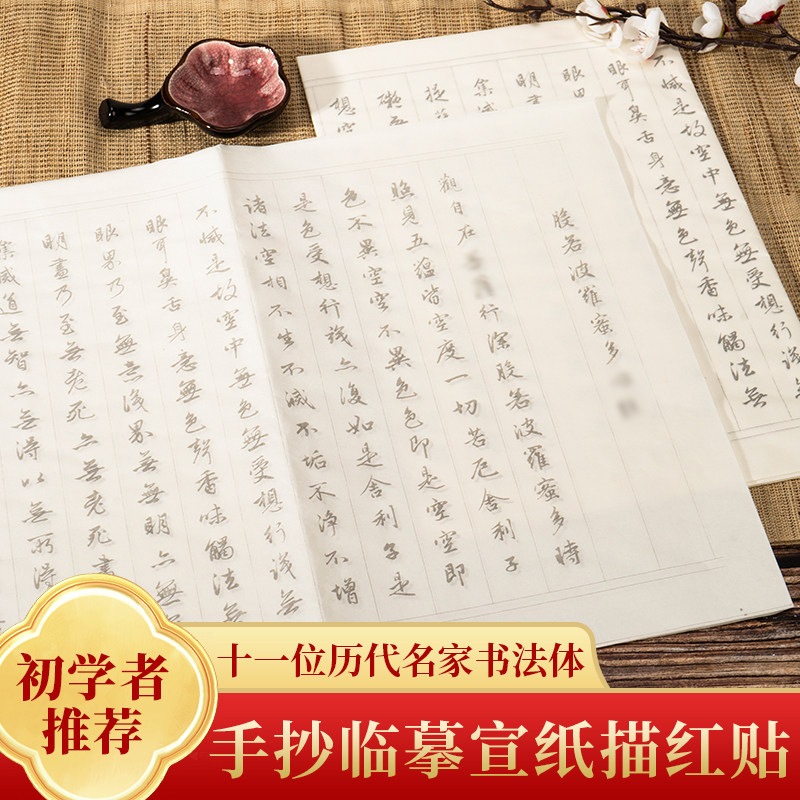 般若波羅蜜多
觀自在
行深般若波羅蜜多時
照見五蘊皆空度一切苦厄舍利子
色不異空空不異色色即是空空即
是色受想行識亦復如是舍利子是
諸法空相不生不滅不垢不淨不增
不減是故空中無色無受想行識無
眼耳鼻舌身意無色聲香味觸法無
眼界乃至無意識界無無明亦無
明盡乃至無老死亦無老死盡
集滅道無智亦無得以無所得
不減是故空中無色無受想行識無
眼耳鼻舌身意無色聲香味觸法無
眼界
明盡
集滅
提薩
礙無
想究
初学者
推荐
十一位历代名家书法体
手抄临摹宣纸描红贴